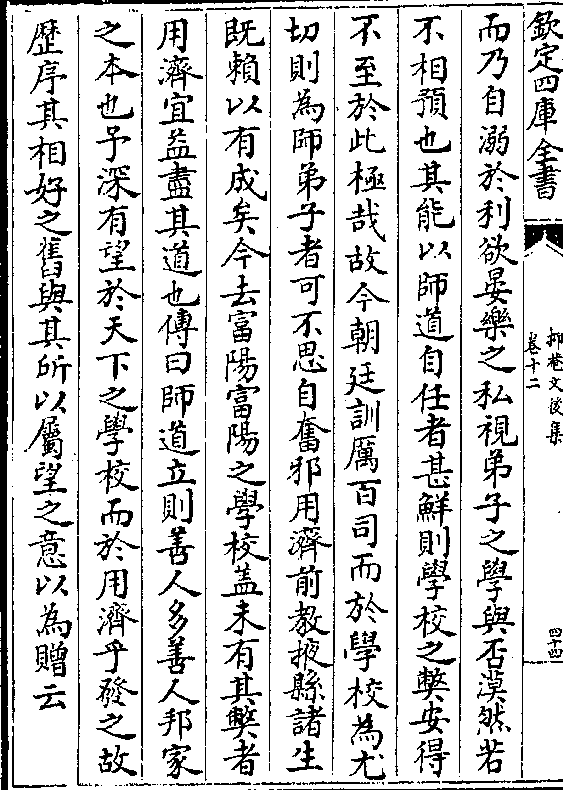 欽定四庫全書
抑菴文後集
卷十二
四十四
而乃自溺於利欲晏樂之私視弟子之學與否漠然若
不相預也其能以師道自任者甚鮮則學校之獘安得
不至於此極哉故今朝廷訓厲百司而於學校為尤
切則為師弟子者可不思自奮邪用濟前教掖縣諸生
既賴以有成矣今去富陽富陽之學校蓋未有其獘者
用濟宜益盡其道也傳曰師道立則善人多善人邦家
之本也予深有望於天下之學校而於用濟乎發之故
歴序其相好之舊與其所以屬望之意以為贈云